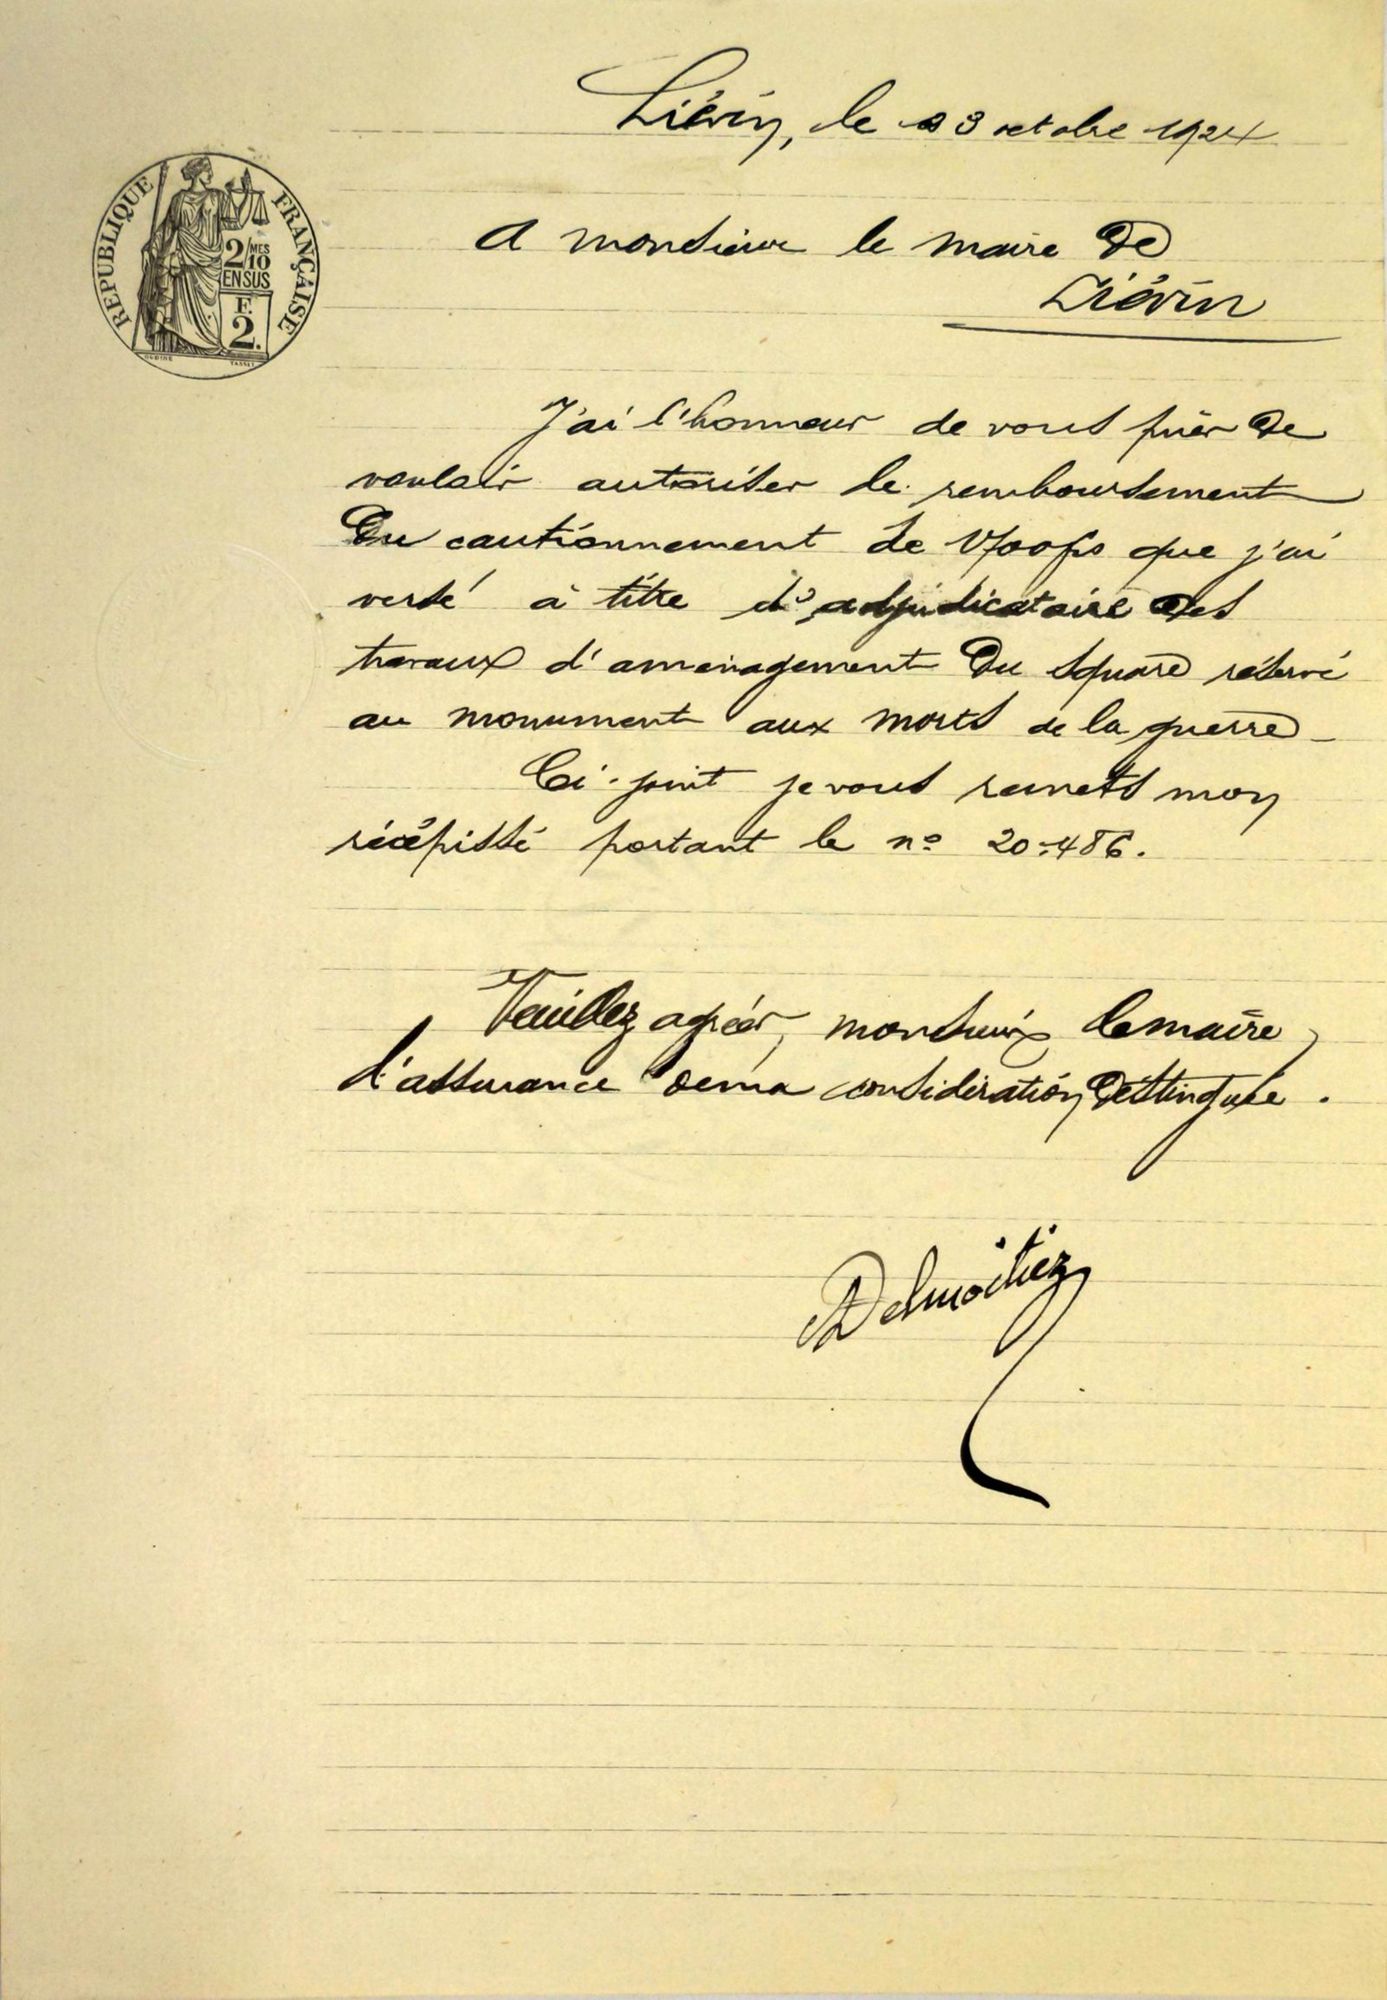 Liévin, le 23 octobre 1924
RÉPUBLIQUE FRANÇAISE
2/MES
10
EN SUS
F.
2.
OUDINÉ TASSET
A monsieur le maire de
Liévin
J'ai l'honneur de vous prier de
vouloir autoriser le remboursement
du cautionnement de que j'ai
versé à titre d'adjudicataire des
travaux d'aménagement du square réservé
au monument aux morts de la guerre -
Ci-joint je vous remets mon
récépissé portant le n° 20.486.
Veuillez agréer, monsieur le maire,
l'assurance de ma considération distinguée.
Delmoitiez